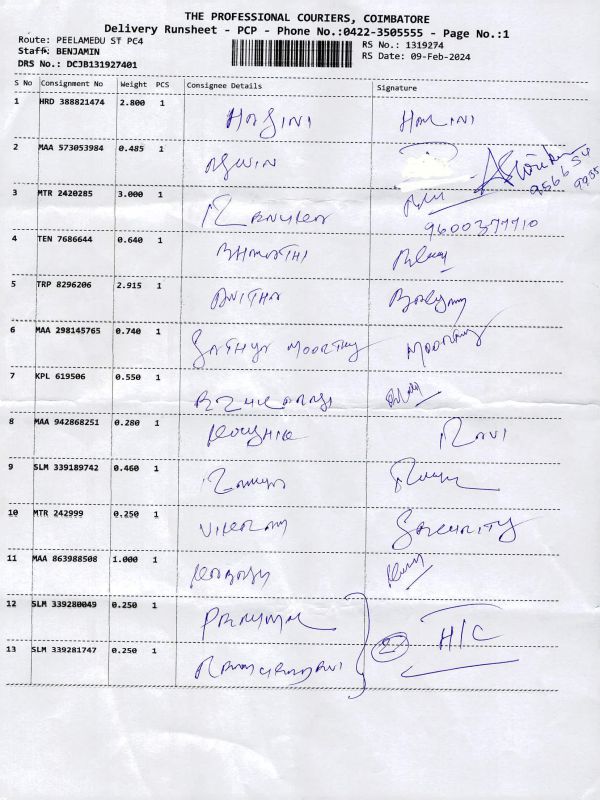 THE PROFESSIONAL COURIERS, COIMBATORE
Delivery Runsheet - PCP - Phone No.:0422-3505555 - Page No.:1
Route: PEELAMEDU ST PC4
Staff: BENJAMIN
DRS No.: DCJB131927401
RS No.: 1319274
RS Date: 09-Feb-2024
S No Consignment No Weight PCS Consignee Details Signature
1 HRD 388821474 2.800 1 HASINI HASINI
2 MAA 573053984 0.485 1 ASWIN
3 MTR 2420285 3.000 1
4 TEN 7686644 0.640 1
5 TRP 8296206 2.915 1 ANITHA
6 MAA 298145765 0.740 1 SATHYA MOORTHY MOORTHY
7 KPL 619506 0.550 1
8 MAA 942868251 0.280 1 KOUSHIK RAVI
9 SLM 339189742 0.460 1
10 MTR 242999 0.250 1 VIKRAM SECURITY
11 MAA 863988508 1.000 1
12 SLM 339280049 0.250 1
13 SLM 339281747 0.250 1
2 H/C